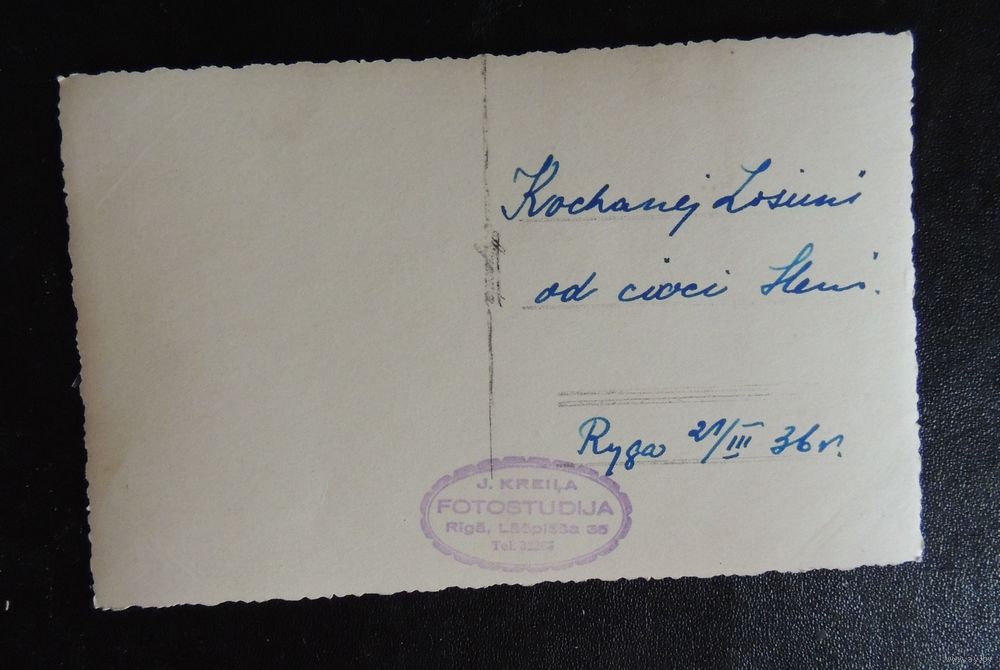 Kochanej Zosieni
od cioci Heni.
Ryga 21/III 36 r.
J. KREIĻA
FOTOSTUDIJA
Rīgā, Lāčplēša 35
Tel.